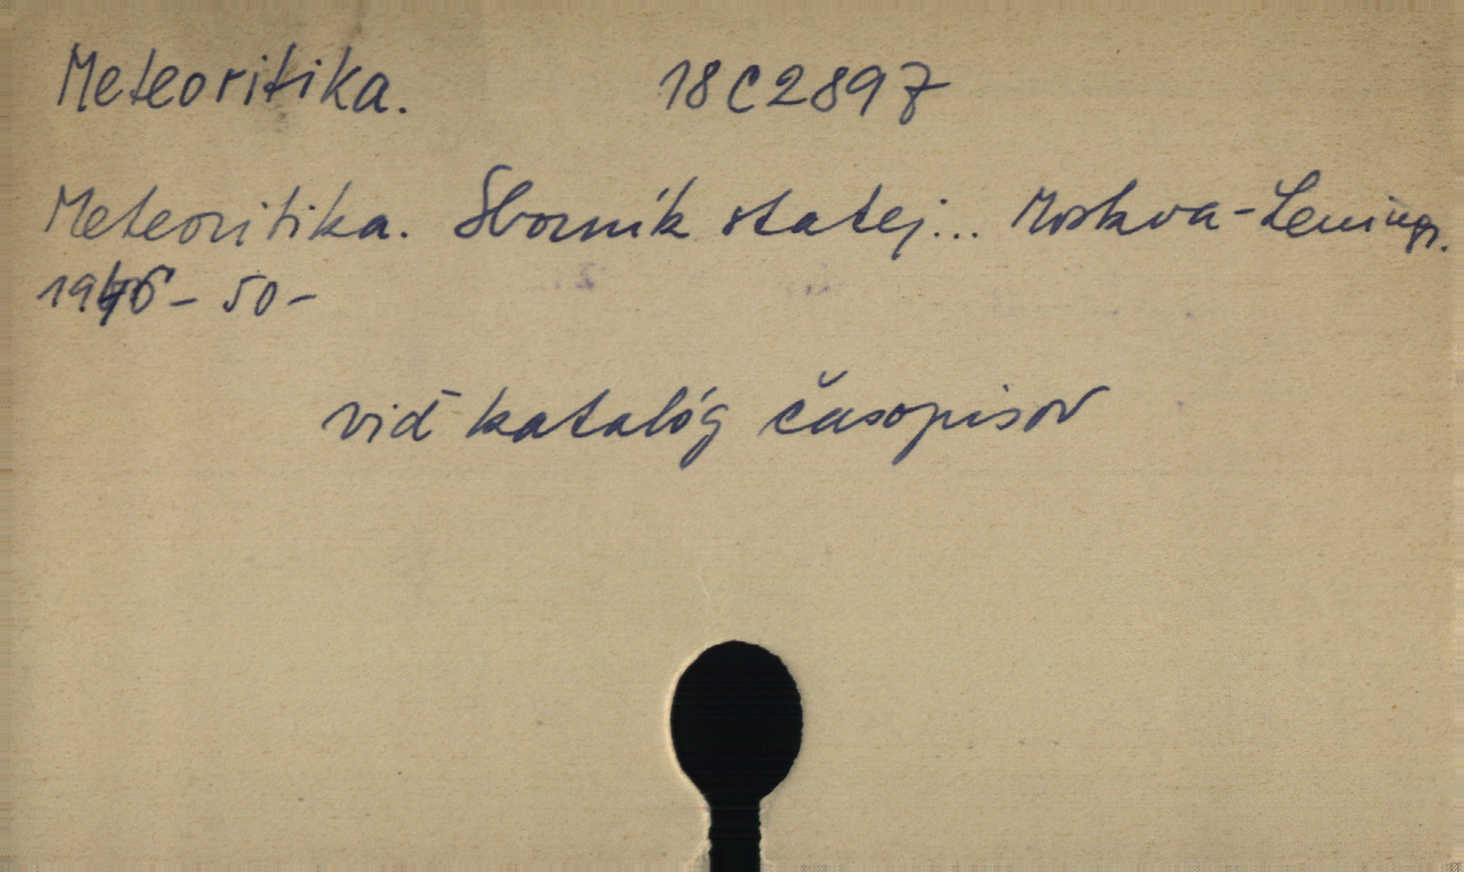 Meteoritika. 18C2897
Meteoritika. Sborník statej... Moskva-Leningr.
1946-50-
viď katalóg časopisov